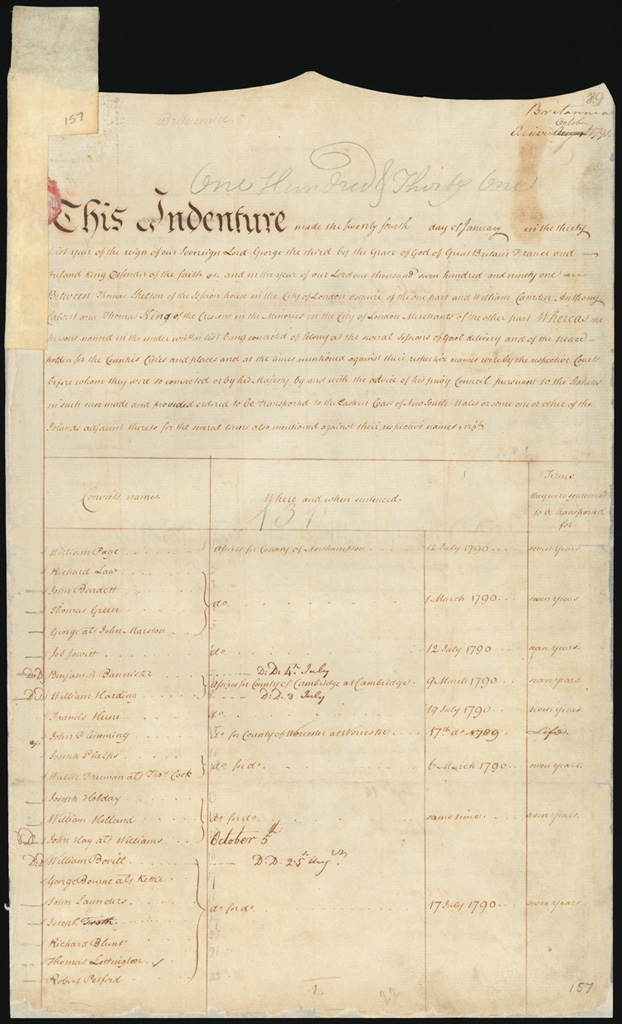 157
Britannia
Britannia
October
1791
One Hundred & Thirty One
This Indenture made the twenty fourth day of January in the thirty
first year of the reign of our Sovereign Lord George the third by the Grace of God of Great Britain France and
Ireland King Defender of the faith &c and in the year of our Lord one thousand seven hundred and ninety one
Between Thomas Shelton of the Session house in the City of London Esquire of the one part and William Camden Anthony
Calvert and Thomas King of the Crescent in the Minories in the City of London Merchants of the other part Whereas the
persons named in the under written list being convicted of felony at the several Sessions of Gaol delivery and of the peace
holden for the Counties Cities and places and at the times mentioned against their respective names were by the respective Courts
before whom they were so convicted or by his Majesty by and with the advice of his privy Council pursuant to the Statutes
in such case made and provided ordered to be transported to the Eastern Coast of New South Wales or some one or other of the
Islands adjacent thereto for the several terms also mentioned against their respective names, vizt
Convicts names
Where and when sentenced
Terms
they were sentenced
to be transported
for
131
William Page Assizes for County of Northampton 12 July 1790 seven years
Richard Law
John Bardett
Thomas Green do 1 March 1790 seven years
George als John Marston
Job Jowitt do 12 July 1790 seven years
DD Benjamin Bannister D.D. 4th July
Assizes for County of Cambridge at Cambridge 9 March 1790 seven years
DD William Harding D.D. 3 July
Francis Hurse do 19 July 1790 seven years
John Flemming do for County of Worcester at Worcester 17th do 1789 Life
Joseph Phelps
Walter Freeman als Thos Cook do for do 6 March 1790 seven years
Joseph Hobday
William Holland do for do same time seven years
DD John Hay als Williams October 5th
DD William Bovill D.D. 25th Augst
George Bourne als Kettle
John Saunders do for do 17 July 1790 seven years
Joseph
Richard Blunt
Thomas Lottington
Robert Pesford
1
22
157